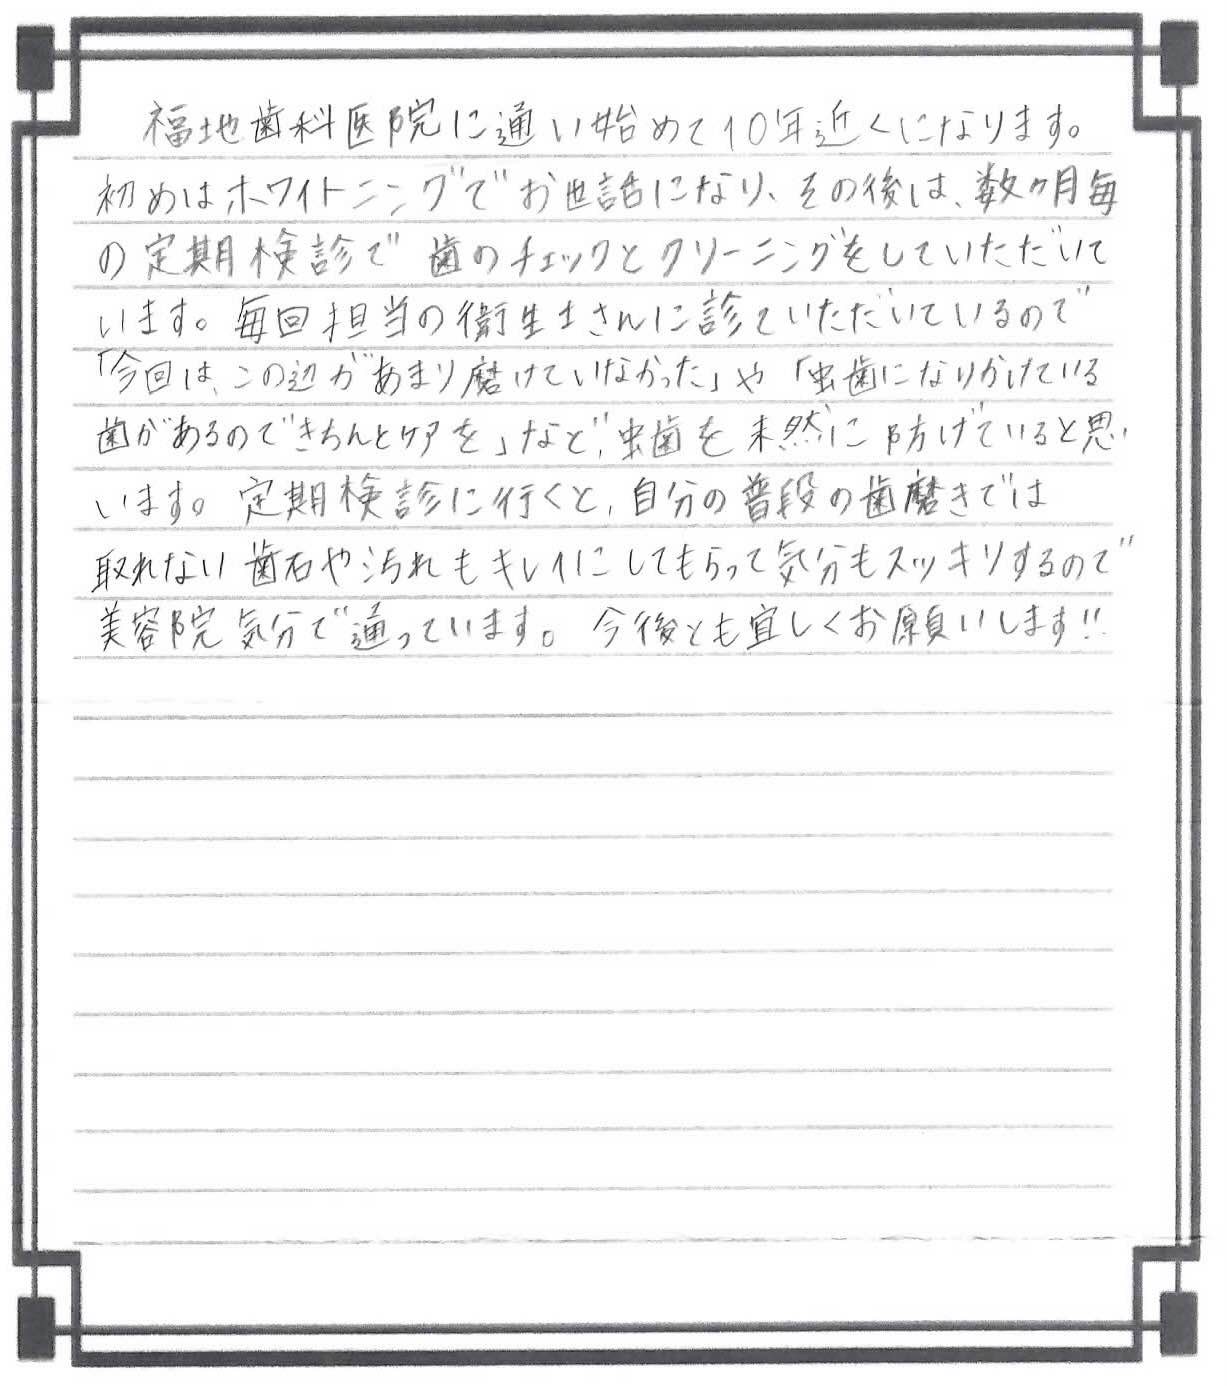 福地歯科医院に通い始めて10年近くになります。
初めはホワイトニングでお世話になり、その後は、数ヶ月毎
の定期検診で歯のチェックとクリーニングをしていただいて
います。毎回担当の衛生士さんに診ていただいているので
「今回は、この辺があまり磨けていなかった」や「虫歯になりかけている
歯があるのできちんとケアを」など、虫歯を未然に防げていると思
います。定期検診に行くと、自分の普段の歯磨きでは
取れない歯石や汚れもキレイにしてもらって気分もスッキリするので
美容院気分で通っています。今後とも宜しくお願いします!!